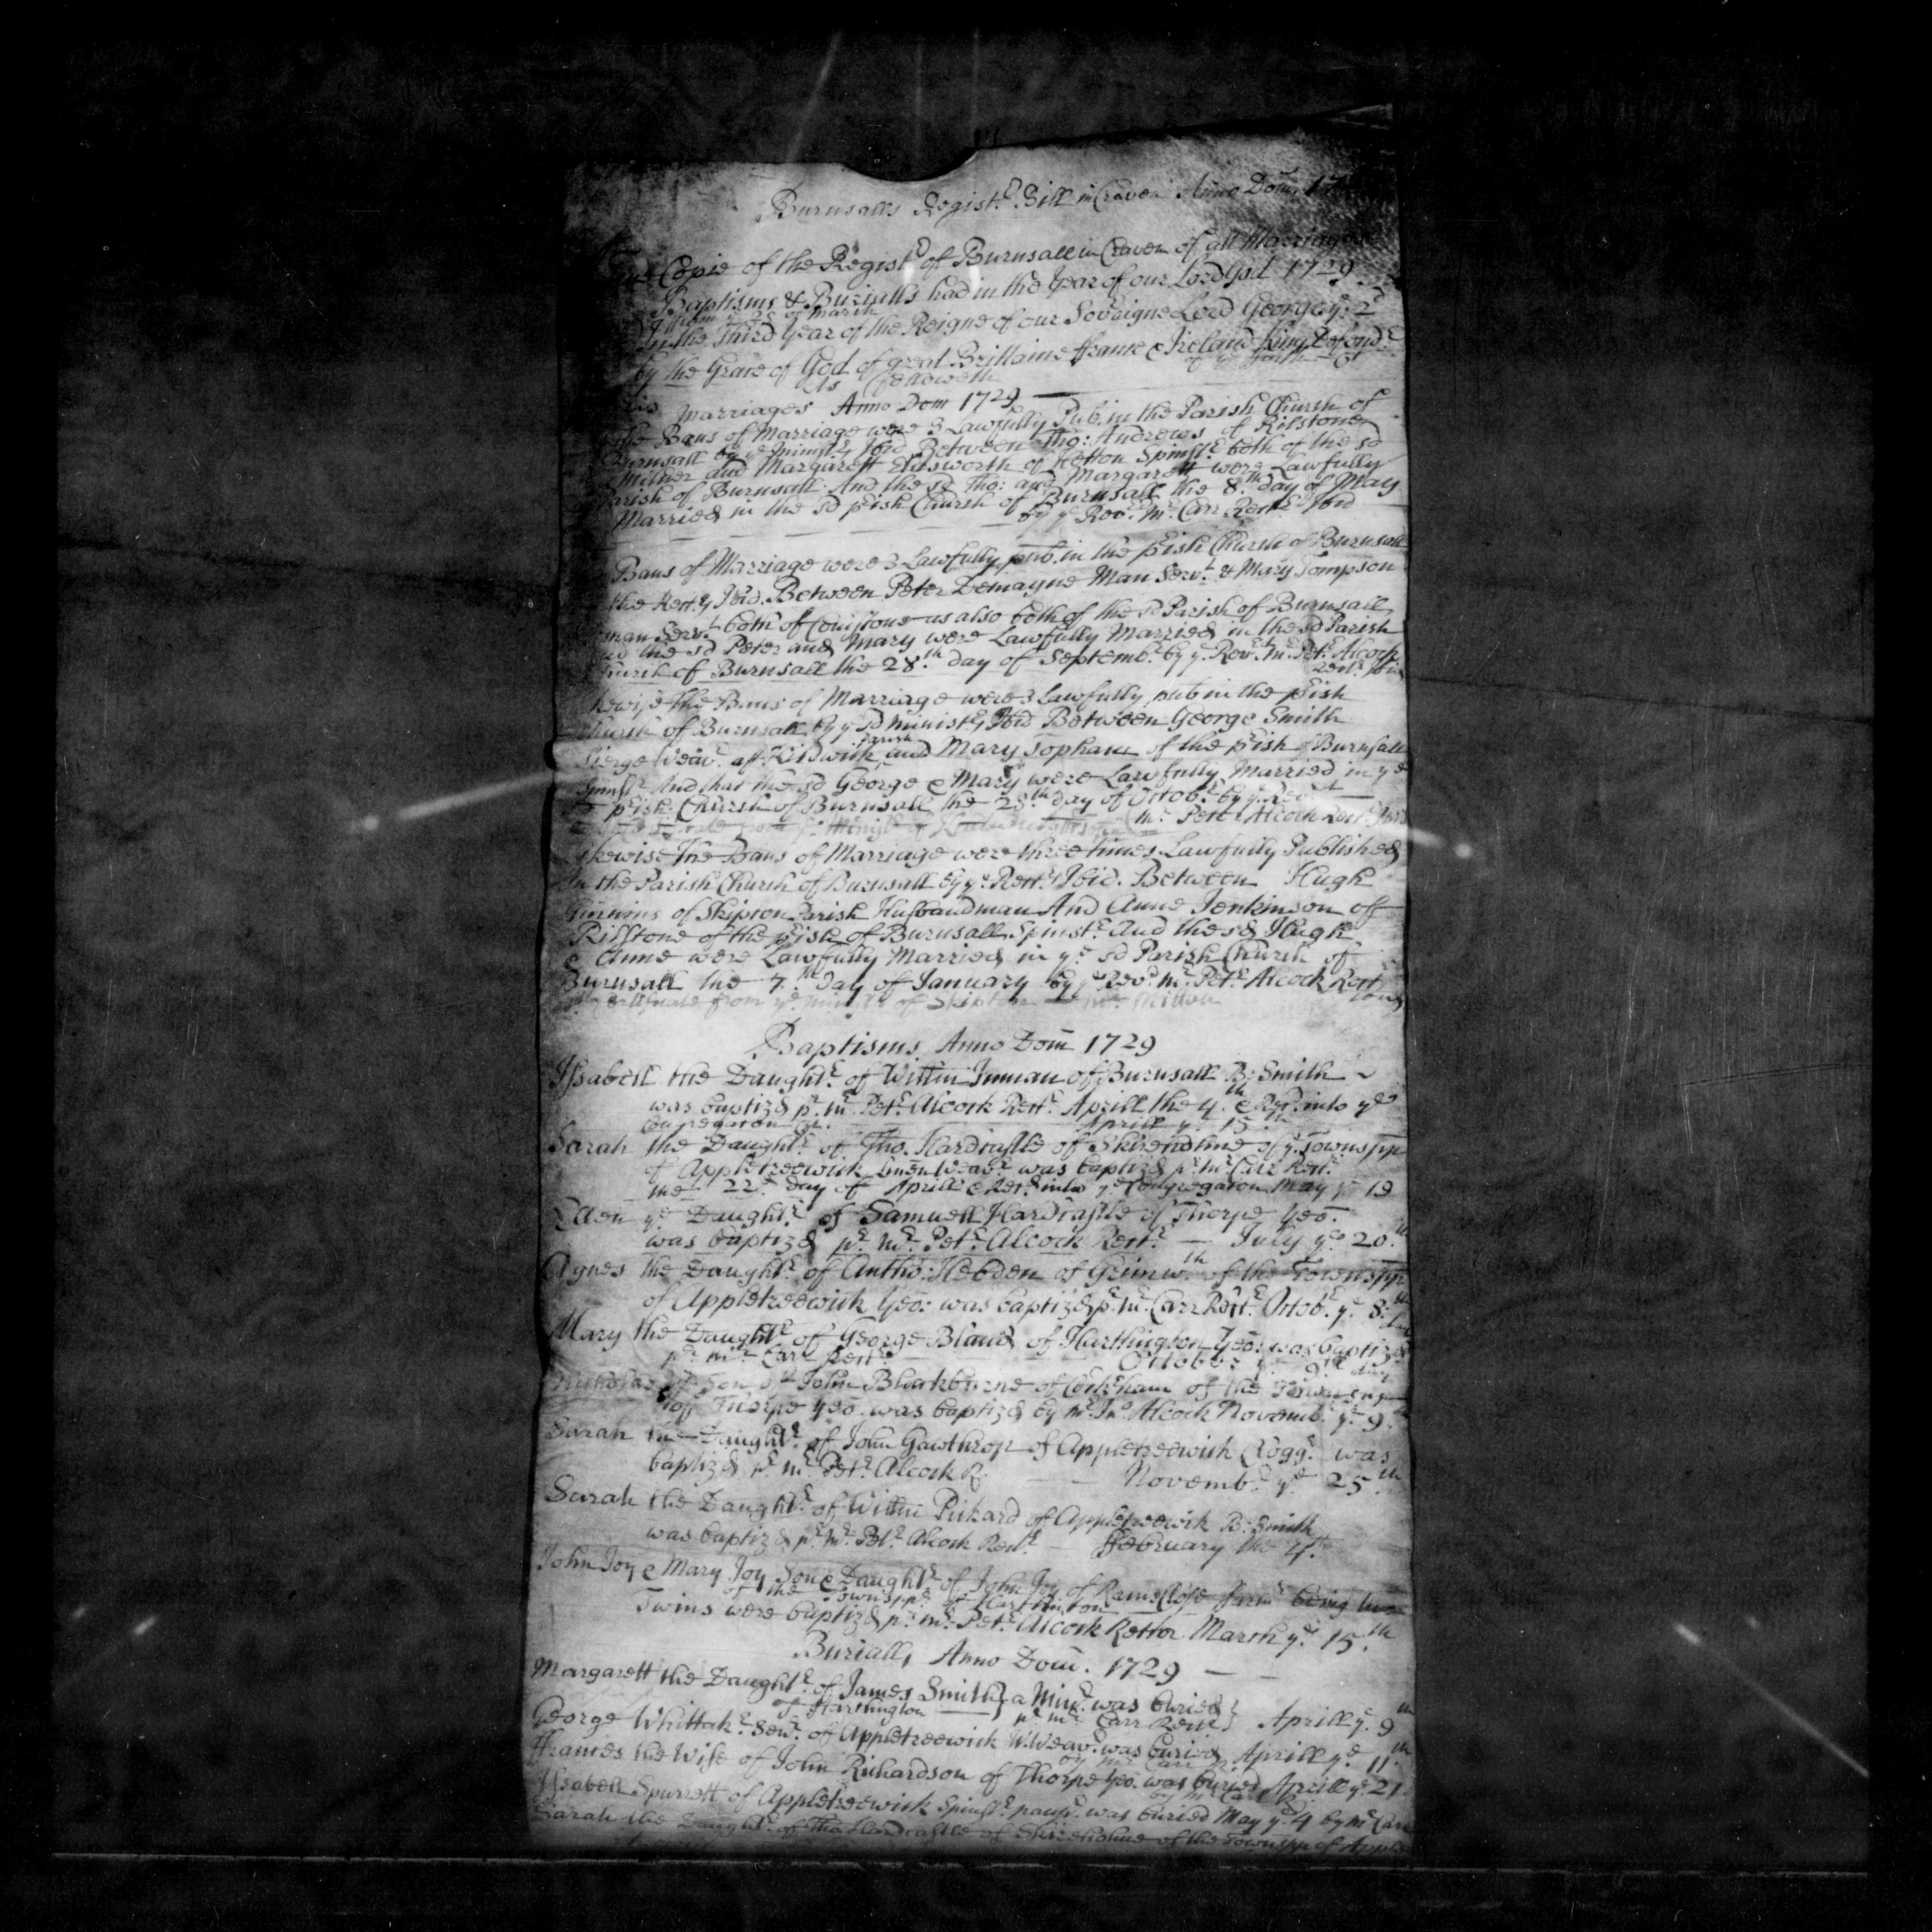 Burnsalls Registr. Bill in Craven Anno Dom: 17
Copie of the Registr of Burnsall in Craven of all Marriages
Baptisms & Buriall's had in the Year of our Lord God 1729
from ye 25 of March
In the Third Year of the Reigne of our Soveraigne Lord George ye 2d
by the Grace of God of great Brittaine ffrance & Ireland King Defendr
of ye faith
As followeth
Marriages Anno Dom 1729
the Bans of Marriage were 3 Lawfully Pub. in the Parish Church of
Burnsall by ye Ministr Ibid Between Tho: Andrews of Rilstone
and Margarett Ellisworth of Hetton Spinstr both of the sd
Parish of Burnsall. And the sd Tho: and Margarett were Lawfully
Married in the sd pish Church of Burnsall the 8th day of May
by ye Revd Mr Carr Rectr Ibid
Bans of Marriage were 3 Lawfully pub. in the pish Church of Burnsall
the Rectr Ibid. Between Peter Demayne Man Servt & Mary Tompson
man Servt both of Conistone as also both of the sd Parish of Burnsall
the sd Peter and Mary were Lawfully Married in the sd Parish
Church of Burnsall the 28th day of Septembr by ye Revd Mr Petr Alcock
Rectr Ibid
the Bans of Marriage were 3 Lawfully pub in the pish
Church of Burnsall by ye sd Ministr Ibid Between George Smith
Sierge Weavr of Kildwick Parish and Mary Topham of the pish of Burnsall
Spinstr And that the sd George & Mary were Lawfully Married in ye
sd pish Church of Burnsall the 28th day of Octobr by ye Revd
Mr Petr Alcock Rectr Ibid
Likewise The Bans of Marriage were three times Lawfully Published
In the Parish Church of Burnsall by ye Rectr Ibid. Between Hugh
of Skipton Parish Husbandman And Anne Jenkinson off
Rilstone of the pish of Burnsall Spinstr And the sd Hugh
& Anne were Lawfully Married in ye sd Parish Church of
Burnsall the 7th day of January by ye Revd Mr Petr Alcock Rectr
Certificate from ye Ministr of Skipton
Baptisms Anno Dom 1729
Issabell the Daughtr of Willm Inman of Burnsall B: Smith
was baptizd pr Mr Petr Alcock Rectr Aprill the 4th & Recd into ye
Congregaton Aprill ye 15th
Sarah the Daughtr of Tho. Hardcastle of Skireholme of ye Townspp
of Appletreewick Linen Weavr was baptizd pr Mr Carr Rectr
the 22d day of Aprill & Recd into ye Congregaton May ye 19
Ellen ye Daughtr of Samuell Hardcastle of Thorpe Yeo.
was baptizd pr Mr Petr Alcock Rectr July ye 20th
Agnes the Daughtr of Antho: Hebden of Grimwth of the Townspp
of Appletreewick Yeo: was baptizd pr Mr Carr Rectr Octobr ye 8th
Mary the Daughtr of George Bland of Harthington Yeo: was baptizd
pr Mr Carr Rectr October ye 9th day
Nicholas ye Son of John Blackburne of Cork'ham of the Townshpp
off Thorpe Yeo. was baptizd by Mr Jno Alcock Novembr ye 9
Sarah the Daughtr of John Gawthrop of Appletreewick Cloggr was
baptizd pr Mr Petr Alcock R. Novembr ye 25th
Sarah the Daughtr of Willm Pickard of Appletreewick B: Smith
was baptizd pr Mr Petr Alcock Rectr ffebruary the 4th
John Joy & Mary Joy Son & Daughtr of John Joy of Ramsclose farmr being two
of the Townspp of Harthington
Twins were baptizd pr Mr Petr Alcock Rettor March ye 15th
Burialls Anno Dom. 1729
Margarett the Daughtr of James Smith a Minr was buried
of Harthington pr Mr Carr Rectr Aprill ye 9th
George Whittakr Senr of Appletreewick W. Weavr was buried Aprill ye 11th
by Mr Carr R.
ffrances the Wife of John Richardson of Thorpe Yeo. was buried Aprill ye 21
by Mr Carr R.
Issabell Spurrett of Appletreewick Spinstr paupr was buried May ye 4 by Mr Carr
Sarah the Daughtr of Tho Hardcastle of Skireholme of the Townspp of Apple